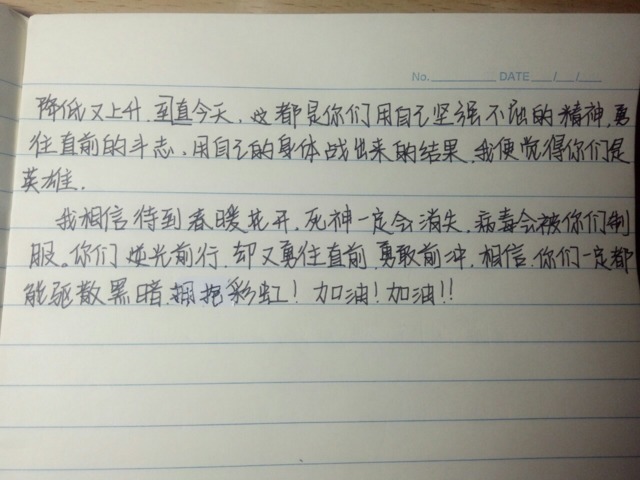 No. DATE / /
降低又上升,到直今天,这都是你们用自己坚强不屈的精神,勇
往直前的斗志,用自己的身体战出来的结果,我便觉得你们是
英雄.
我相信待到春暖花开,死神一定会消失,病毒会被你们制
服。你们逆光前行,却又勇往直前,勇敢前冲,相信,你们一定都
能驱散黑暗,拥抱彩虹!加油!加油!!